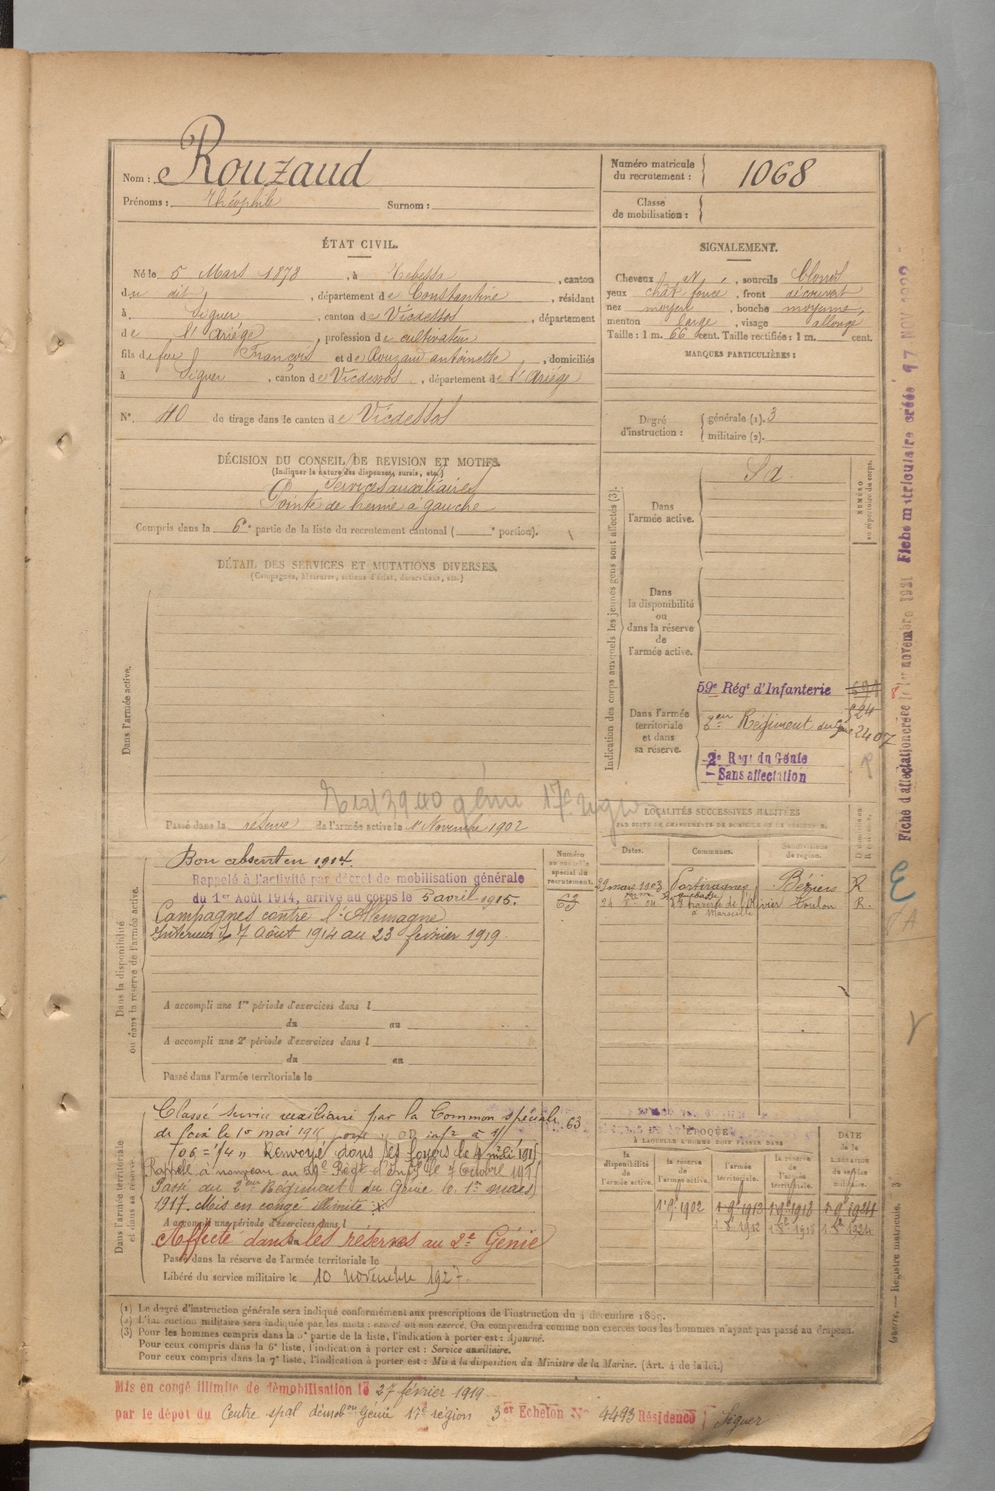 Nom : Rouzaud
Prénoms : Théophile Surnom :
Numéro matricule du recrutement : 1068
Classe de mobilisation :
ÉTAT CIVIL.
Né le 5 Mars 1878, à Tebessa, canton
du dit, département de Constantine, résidant
à Siguer, canton de Vicdessos, département
de l'Ariège, profession de cultivateur
fils de feu François et de Rouzaud antoinette, domiciliés
à Siguer, canton de Vicdessos, département de l'Ariège
N° 40 de tirage dans le canton de Vicdessos
SIGNALEMENT.
Cheveux , sourcils blonds
yeux chât foncé, front découvert
nez moyen, bouche moyenne,
menton large, visage allongé
Taille : 1 m. 66 cent. Taille rectifiée : 1 m. cent.
MARQUES PARTICULIÈRES :
Degré d'instruction : générale (1). 3
militaire (2).
DÉCISION DU CONSEIL DE REVISION ET MOTIFS.
(Indiquer la nature des dispenses, sursis, etc.)
Services auxiliaires
Pointe de hernie à gauche
Compris dans la 6e partie de la liste du recrutement cantonal ( e portion).
DÉTAIL DES SERVICES ET MUTATIONS DIVERSES.
(Campagnes, blessures, actions d'éclat, décorations, etc.)
Dans l'armée active.
Passé dans la réserve de l'armée active le 1er Novembre 1902
Indication des corps auxquels les jeunes gens sont affectés (3).
NUMÉRO au répertoire du corps.
Dans l'armée active. Sd
Dans la disponibilité ou dans la réserve de l'armée active.
Dans l'armée territoriale et dans sa réserve.
59e Régt d'Infanterie
524
2eme Régiment du Génie 2407
2e Régt du Génie
Sans affectation
Fiche matriculaire créée
Fiche d'affectation créée le 1er novembre 1921
Dans la disponibilité ou dans la réserve de l'armée active.
Bon absent en 1914.
Rappelé à l'activité par décret de mobilisation générale
du 1er Août 1914, arrivé au corps le 5 avril 1915.
Campagnes contre l'Allemagne
Intérieur du 7 Août 1914 au 23 février 1919.
A accompli une 1re période d'exercices dans l
du au
A accompli une 2e période d'exercices dans l
du au
Passé dans l'armée territoriale le
Numéro au contrôle spécial du recrutement.
LOCALITÉS SUCCESSIVES HABITÉES
PAR SUITE DE CHANGEMENTS DE DOMICILE OU DE RÉSIDENCE.
Dates. Communes. Subdivisions de région.
29 mars 1903 Portiragnes Béziers R
Toulon R.
à Marseille
Dans l'armée territoriale et dans sa réserve.
Classé service auxiliaire par la Common spéciale
de Foix le 1er mai 1915
Renvoyé dans ses foyers le
Passé au 2eme Régiment du Génie le 1er mars
1917. Mis en congé illimité
A accompli une période d'exercices dans l
Affecté dans les réserves au 2e Génie
Passé dans la réserve de l'armée territoriale le
Libéré du service militaire le 10 novembre 1927.
63
ÉPOQUE
À LAQUELLE L'HOMME DOIT PASSER DANS
la disponibilité de l'armée active. la réserve de l'armée active. l'armée territoriale. la réserve de l'armée territoriale. DATE de la LIBÉRATION du service militaire.
(1) Le degré d'instruction générale sera indiqué conformément aux prescriptions de l'instruction du 4 décembre 1889.
(2) L'instruction militaire sera indiquée par les mots : exercé ou non exercé. On comprendra comme non exercés tous les hommes n'ayant pas passé au drapeau.
(3) Pour les hommes compris dans la 5e partie de la liste, l'indication à porter est : Ajourné.
Pour ceux compris dans la 6e liste, l'indication à porter est : Service auxiliaire.
Pour ceux compris dans la 7e liste, l'indication à porter est : Mis à la disposition du Ministre de la Marine. (Art. 4 de la loi.)
Guerre. — Registre matricule. 3
Mis en congé illimité de démobilisation le 27 février 1919
par le dépôt du Centre spal démobon Génie 17e région 3er Echelon N° 4493 Résidence Siguer